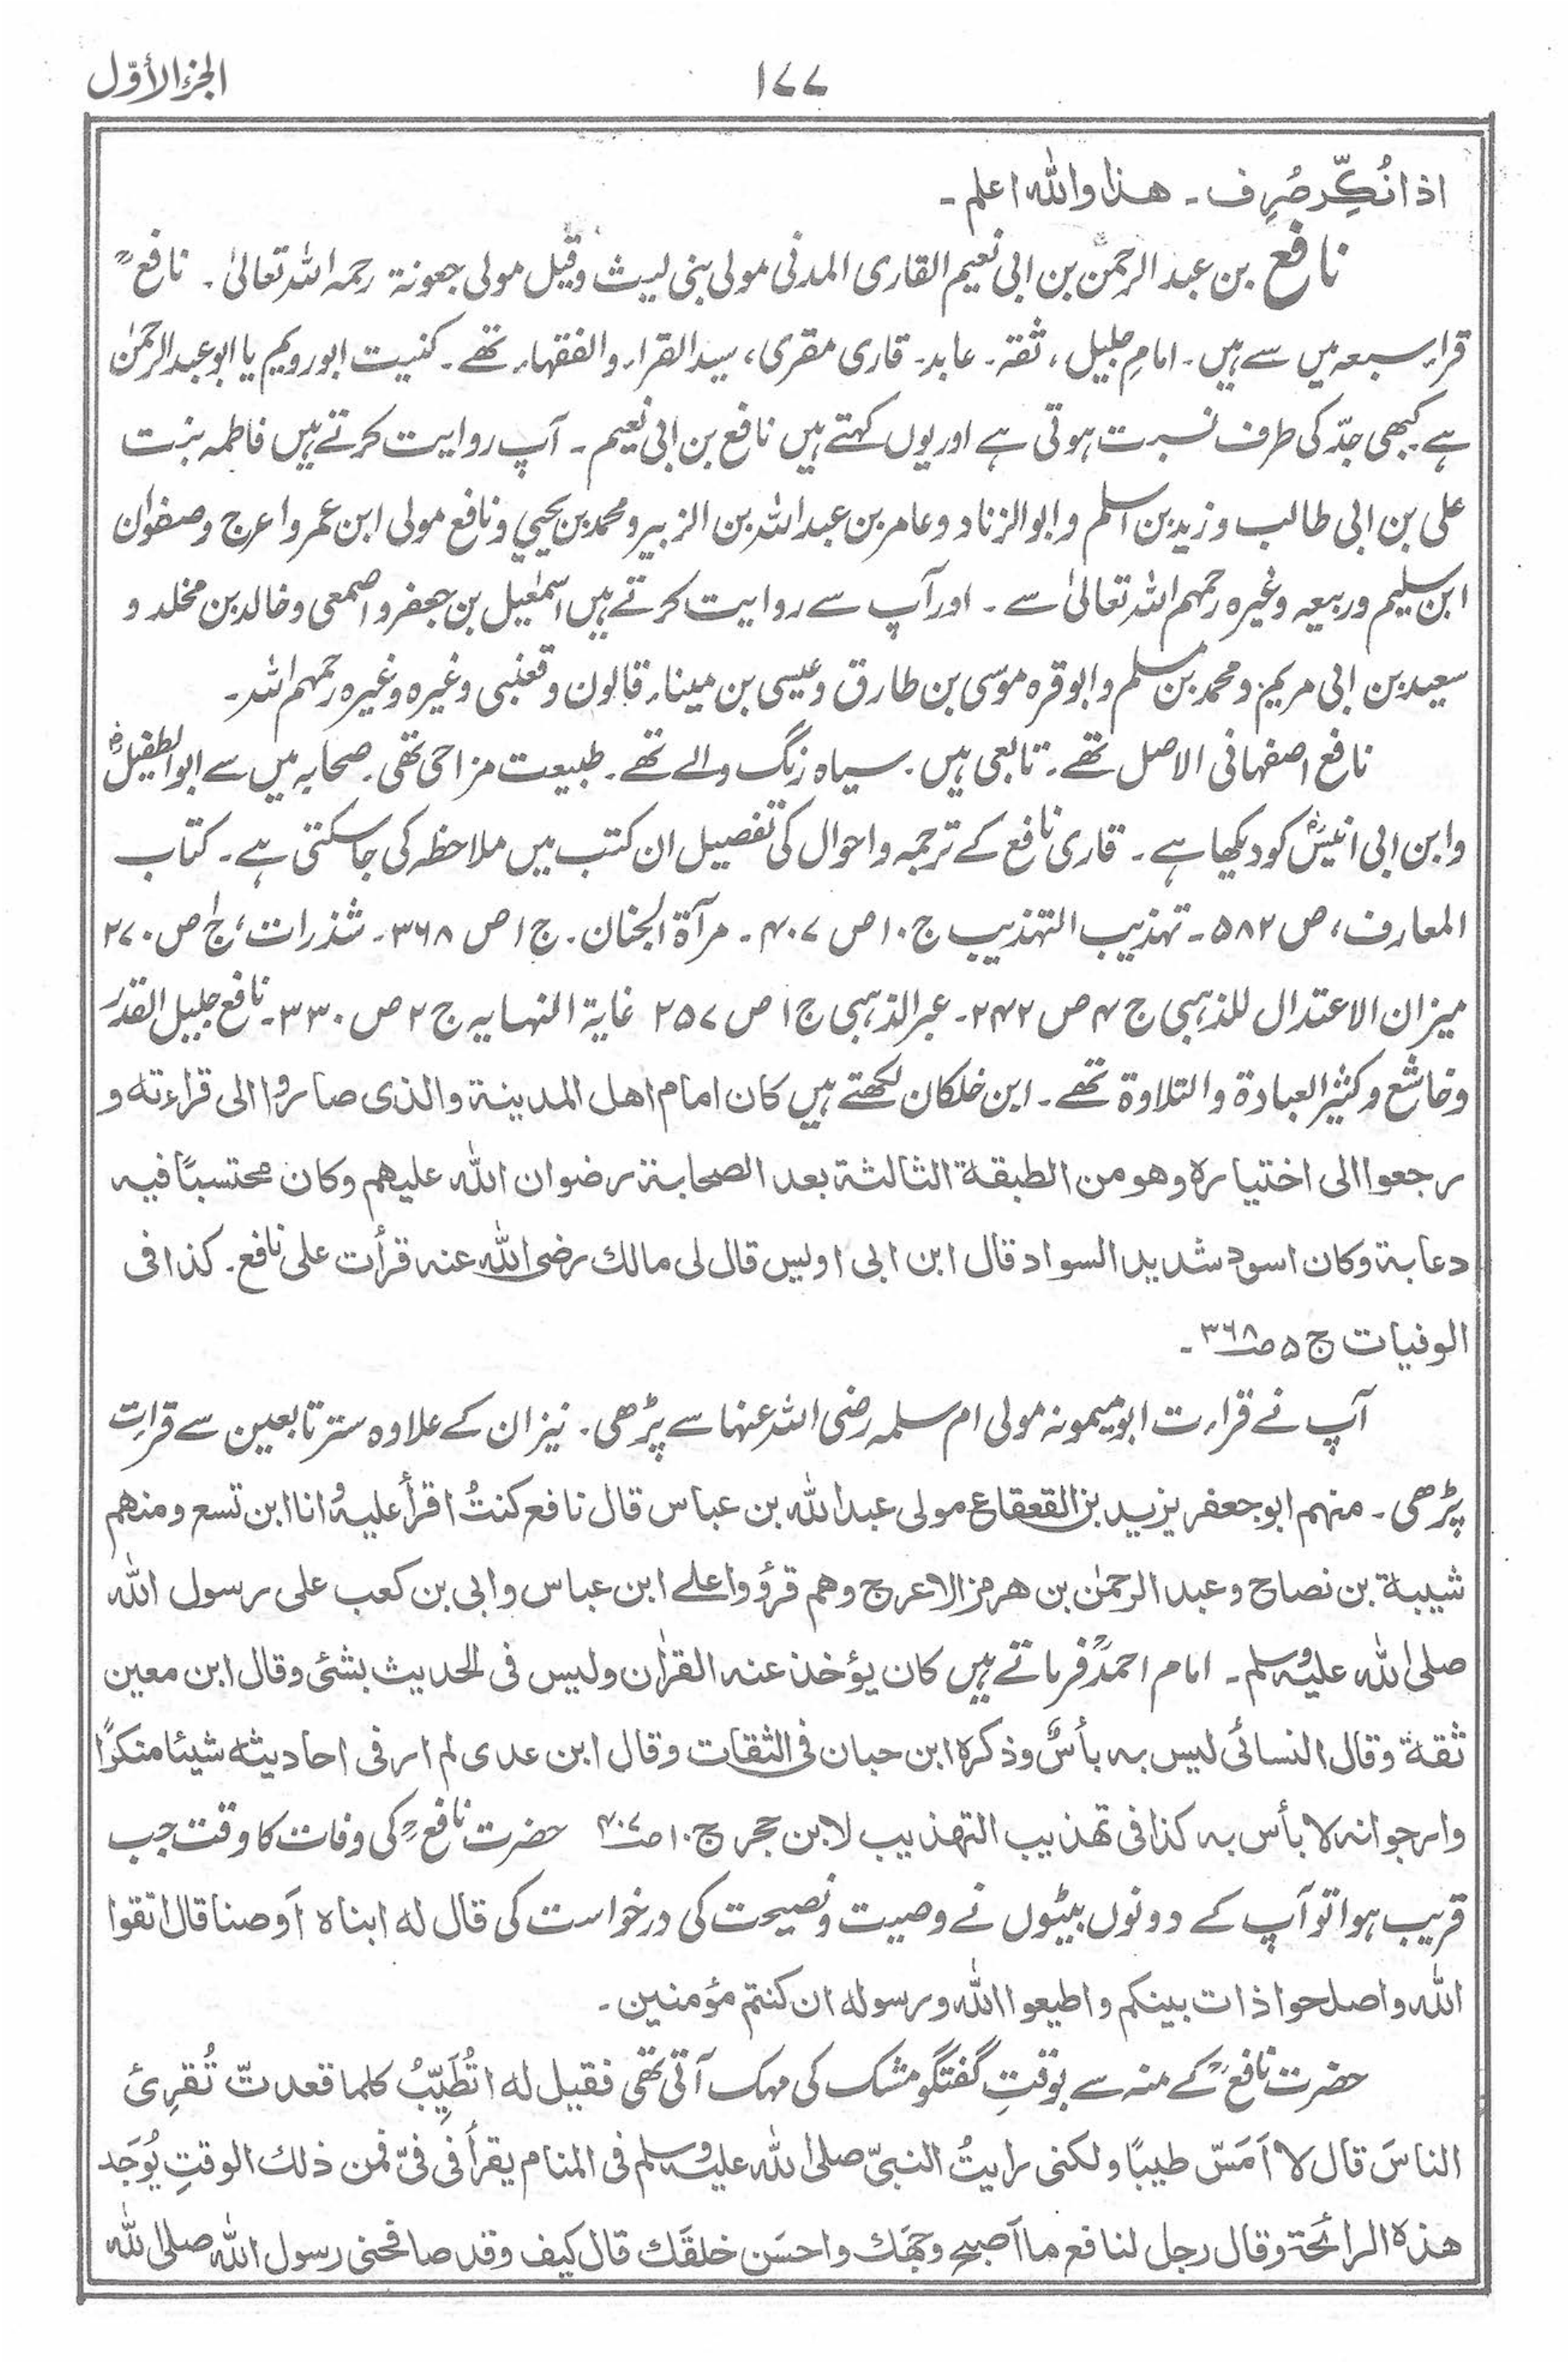 الجزء الأوّل
۱۷۷
اذا نُکِّر صُرِف ۔ ھذا واللہ اعلم ۔
نافع بن عبد الرحمٰن بن ابی نعیم القاری المدنی مولی بنی لیث وقیل مولی جعونۃ رحمہ اللہ تعالیٰ ۔ نافعؒ
قراء سبعہ میں سے ہیں ۔ امامِ جلیل ، ثقہ ۔ عابد ۔ قاری مقری ، سید القراء والفقہاء تھے ۔ کنیت ابورویم یا ابوعبدالرحمٰن
ہے کبھی جدّ کی طرف نسبت ہوتی ہے اور یوں کہتے ہیں نافع بن ابی نعیم ۔ آپ روایت کرتے ہیں فاطمہ بنت
علی بن ابی طالب و زید بن اسلم و ابوالزناد و عامر بن عبد اللہ بن الزبیر و محمد بن یحییٰ و نافع مولی ابن عمر و اعرج و صفوان
ابن سلیم و ربیعہ وغیرہ رحمہم اللہ تعالیٰ سے ۔ اور آپ سے روایت کرتے ہیں اسمٰعیل بن جعفر و اصمعی و خالد بن مخلد و
سعید بن ابی مریم و محمد بن مسلم و ابوقرہ موسی بن طارق و عیسی بن میناء قالون و قعنبی وغیرہ وغیرہ رحمہم اللہ ۔
نافع اصفہانی الاصل تھے ۔ تابعی ہیں ۔ سیاہ رنگ والے تھے ۔ طبیعت مزاحی تھی ۔ صحابہ میں سے ابوالطفیلؓ
وابن ابی انیسؓ کو دیکھا ہے ۔ قاری نافع کے ترجمہ و احوال کی تفصیل ان کتب میں ملاحظہ کی جاسکتی ہے ۔ کتاب
المعارف ، ص ۵۸۲ ۔ تہذیب التہذیب ج ۱۰ ص ۴۰۷ ۔ مرآۃ الجنان ۔ ج ۱ ص ۳۶۸ ۔ شذرات ، ج ۱ ص ۲۷۰
میزان الاعتدال للذہبی ج ۴ ص ۲۴۲ ۔ عبر الذہبی ج ۱ ص ۲۵۷ غایۃ النہایہ ج ۲ ص ۳۳۰ ۔ نافع جلیل القدر
وخاشع و کثیر العبادۃ والتلاوۃ تھے ۔ ابن خلکان لکھتے ہیں کان امام اھل المدینۃ والذی صاروا الی قراءتہ و
رجعوا الی اختیارہ وھو من الطبقۃ الثالثۃ بعد الصحابۃ رضوان اللہ علیھم وکان محتسبًا فیہ
دعابۃ وکان اسود شدید السواد قال ابن ابی اویس قال لی مالک رضی اللہ عنہ قرأت علی نافع ۔ کذا فی
الوفیات ج ۵ ص ۳۶۸ ۔
آپ نے قراءت ابومیمونہ مولی ام سلمہ رضی اللہ عنہا سے پڑھی ۔ نیز ان کے علاوہ ستر تابعین سے قراءت
پڑھی ۔ منہم ابوجعفر یزید بن القعقاع مولی عبد اللہ بن عباس قال نافع کنتُ اقرأ علیہ وانا ابن تسع ومنھم
شیبۃ بن نصاح وعبد الرحمٰن بن ھرمز الاعرج وھم قرؤوا علے ابن عباس وابی بن کعب علی رسول اللہ
صلی اللہ علیہ وسلم ۔ امام احمدؒ فرماتے ہیں کان یؤخذ عنہ القرٰان ولیس فی الحدیث بشئ وقال ابن معین
ثقۃ وقال النسائی لیس بہ بأسٌ وذکرہ ابن حبان فی الثقات وقال ابن عدی لم ار فی احادیثہ شیئا منکرًا
وارجو انہ لا بأس بہ کذا فی تھذیب التھذیب لابن حجر ج ۱۰ ص ۴۰۷ حضرت نافعؒ کی وفات کا وقت جب
قریب ہوا تو آپ کے دونوں بیٹوں نے وصیت و نصیحت کی درخواست کی قال لہ ابناہ اَوصنا قال اتقوا
اللہ واصلحوا ذات بینکم واطیعوا اللہ ورسولہ ان کنتم مؤمنین ۔
حضرت نافعؒ کے منہ سے بوقتِ گفتگو مشک کی مہک آتی تھی فقیل لہ اتُطَیِّبُ کلما قعدتَّ تُقرِئ
الناسَ قال لا اَمَسّ طیبًا ولکنی رایتُ النبیّ صلی اللہ علیہ وسلم فی المنام یقرأ فی فیّ فمن ذلک الوقتِ یُوجَد
ھذہ الرائحۃ وقال رجل لنافع ما اَصبح وجھَک واحسَن خلقَک قال کیف وقد صافحنی رسول اللہ صلی اللہ